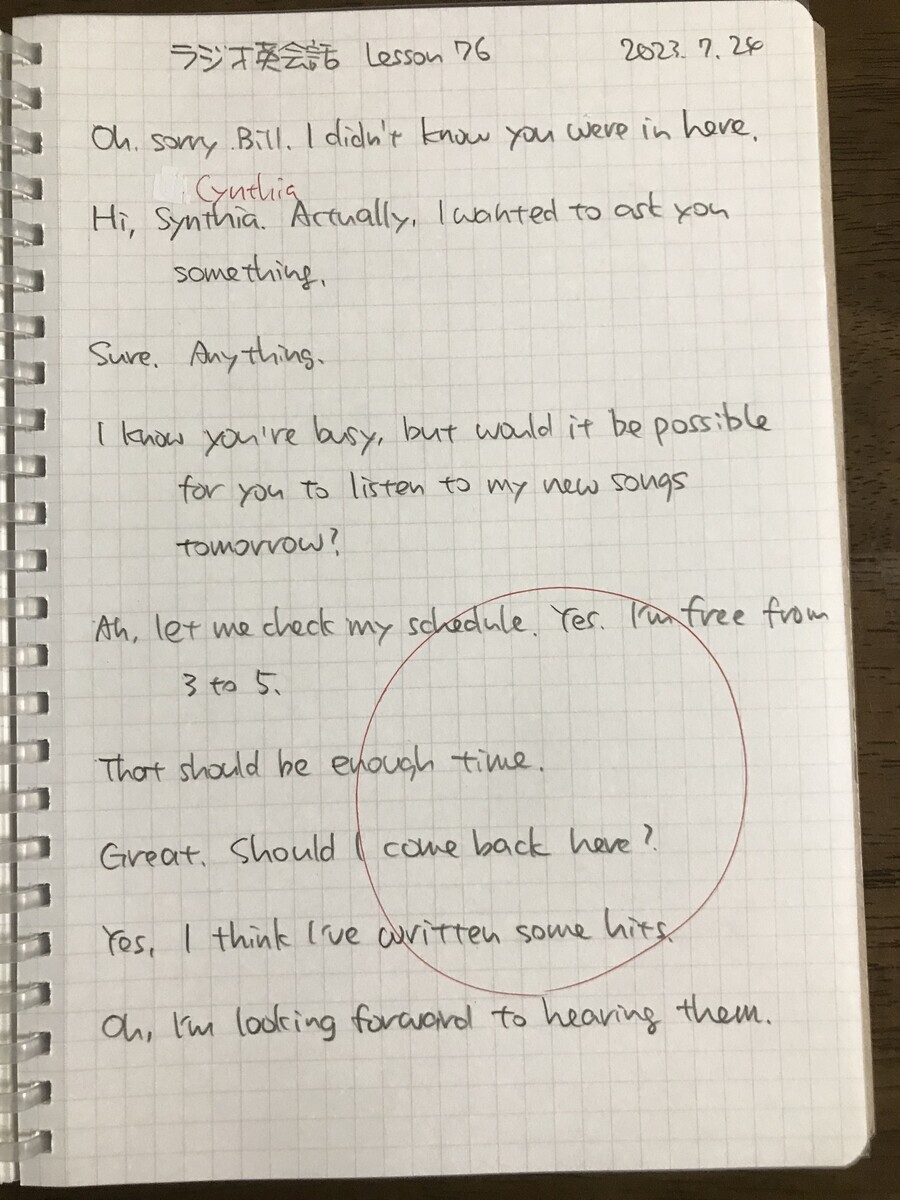 ラジオ英会話 Lesson 76 2023.7.24
Oh. sorry. Bill. I didn't know you were in here.
Cynthia
Hi, Synthia. Actually, I wanted to ask you
something.
Sure. Anything.
I know you're busy, but would it be possible
for you to listen to my new songs
tomorrow?
Ah, let me check my schedule. Yes. I'm free from
3 to 5.
That should be enough time.
Great. Should I come back here?
Yes, I think I've written some hits.
Oh, I'm looking forward to hearing them.